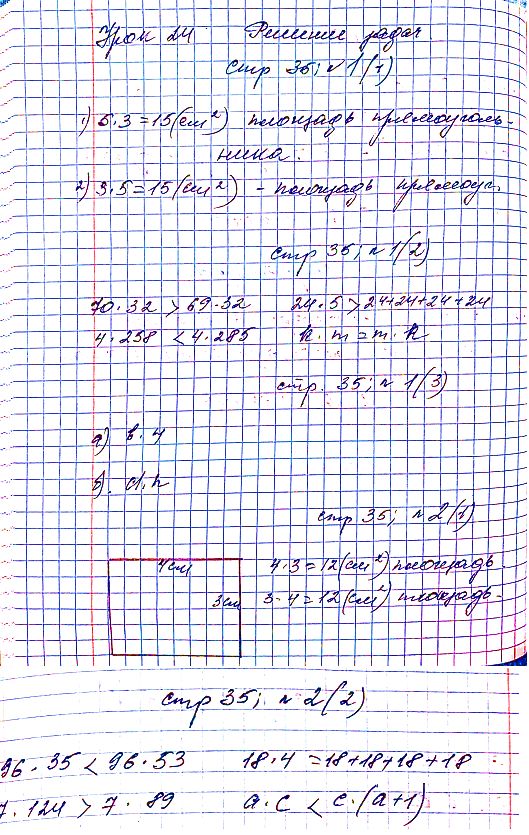 Урок 24 Решение задач
стр 35; № 1(1)
1) 5·3=15(см²) площадь прямоуголь-
ника.
2) 3·5=15(см²) - площадь прямоуг.
стр 35; № 1(2)
70·32 > 69·32 24·5 > 24+24+24+24
4·258 < 4·285 k·m = m·k
стр. 35; № 1(3)
а) b·4
б) d·n
стр 35; № 2(1)
4см 4·3=12(см²) площадь
3см 3·4=12(см²) площадь.
стр 35; № 2(2)
96·35 < 96·53 18·4 = 18+18+18+18
7·124 > 7·89 a·c < c·(a+1)